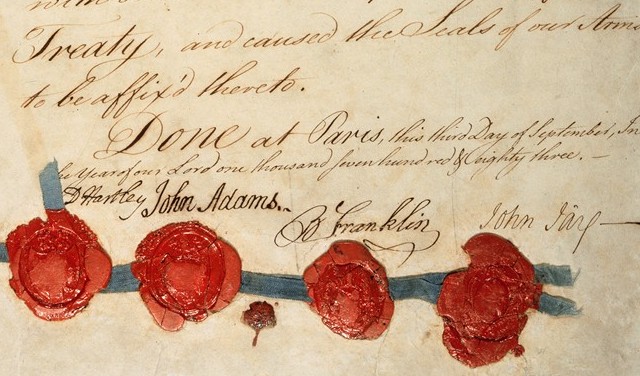 Treaty, and caused the Seals of our Arms
to be affix'd thereto.
Done at Paris, this third Day of September, In
Year of our Lord one thousand seven hundred & eighty three. —
D Hartley John Adams. B Franklin John Jay —